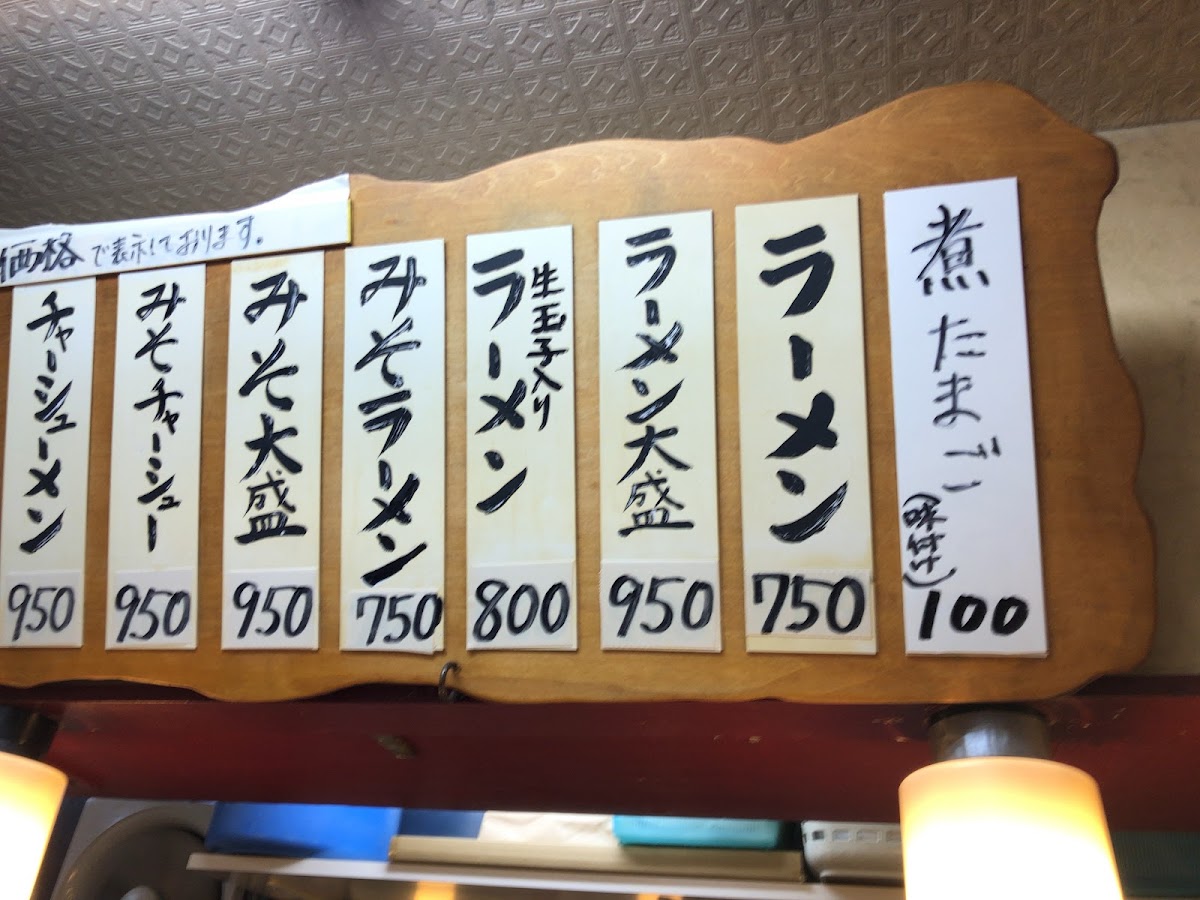 煮たまご
(味付)
100
ラーメン
750
ラーメン大盛
950
生玉子入り
ラーメン
800
みそラーメン
750
みそ大盛
950
みそチャーシュー
950
チャーシューメン
950
価格で表示しております。